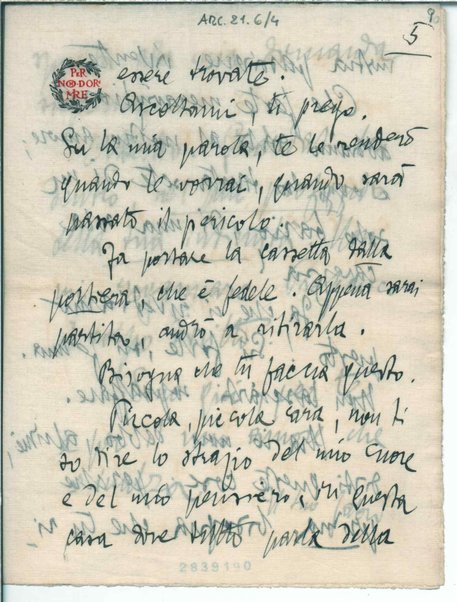 ARC.21.6/4
5
PER
NON DOR
MIRE
essere trovate.
Ascoltami, ti prego.
Su la mia parola, te le renderò
quando le vorrai, quando sarà
passato il pericolo.
Fa portare la cassetta dalla
portiera, che è fedele. Appena sarai
partita, andrò a ritirarla.
Bisogna che tu faccia questo.
Piccola, piccola cara, non ti
so dire lo strazio del mio cuore
e del mio pensiero, in questa
casa dove tutto parla della
2839190